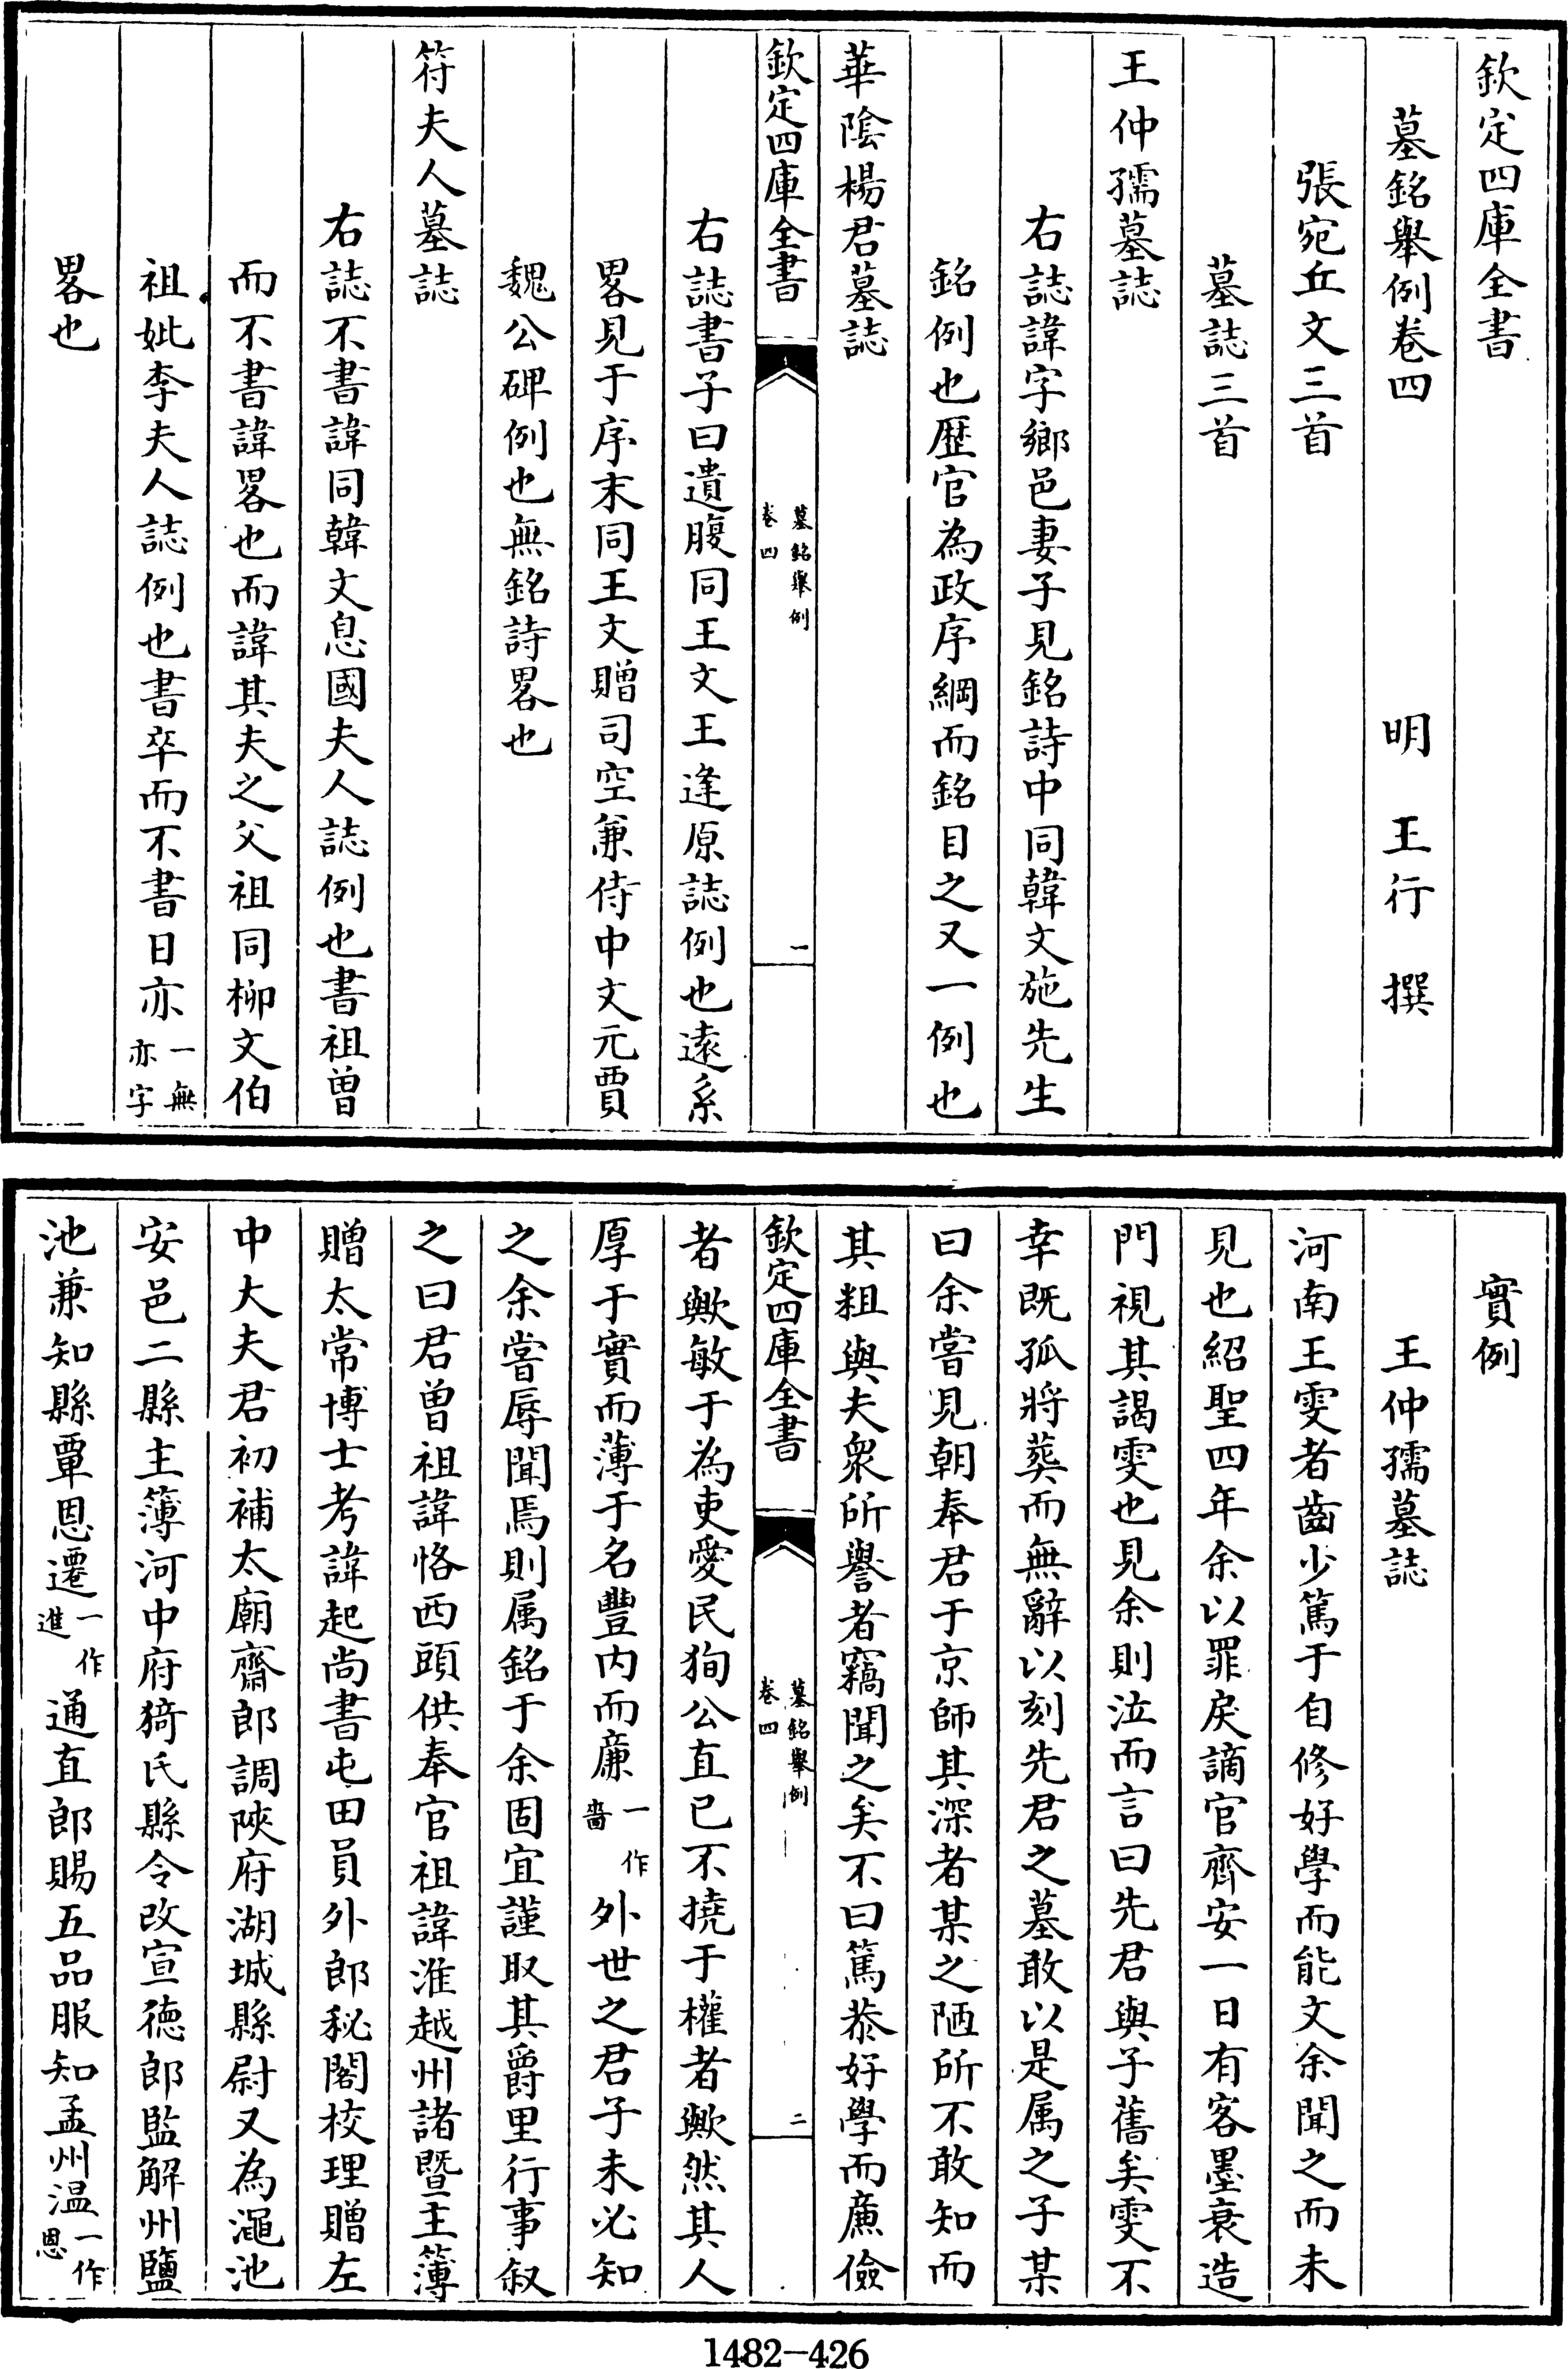 欽定四庫全書
墓銘舉例卷四
明　王行　撰
張宛丘文三首
墓誌三首
王仲孺墓誌
右誌諱字鄉邑妻子見銘詩中同韓文施先生
銘例也歴官為政序綱而銘目之又一例也
華陰楊君墓誌
欽定四庫全書
墓銘舉例
卷四
一
右誌書子曰遺腹同王文王逢原誌例也逺系
畧見于序末同王文贈司空兼侍中文元賈
魏公碑例也無銘詩畧也
符夫人墓誌
右誌不書諱同韓文息國夫人誌例也書祖曾
而不書諱畧也而諱其夫之父祖同栁文伯
祖妣李夫人誌例也書卒而不書日亦一無亦字
畧也
實例
王仲孺墓誌
河南王雯者齒少篤于自修好學而能文余聞之而未
見也紹聖四年余以罪戾謫官齊安一日有客墨衰造
門視其謁雯也見余則泣而言曰先君與子舊矣雯不
幸既孤將葬而無辭以刻先君之墓敢以是属之子某
曰余嘗見朝奉君于京師其深者某之陋所不敢知而
其粗與夫衆所譽者竊聞之矣不曰篤恭好學而亷儉
欽定四庫全書
墓銘舉例
卷四
二
者歟敏于為吏愛民狥公直已不撓于權者歟然其人
厚于實而薄于名豐内而亷一作嗇外世之君子未必知
之余嘗辱聞焉則属銘于余固宜謹取其爵里行事叙
之曰君曾祖諱恪西頭供奉官祖諱淮越州諸暨主簿
贈太常博士考諱起尚書屯田員外郎秘閣校理贈左
中大夫君初補太廟齋郎調陜府湖城縣尉又為澠池
安邑二縣主簿河中府猗氏縣令改宣徳郎監解州鹽
池兼知縣覃恩遷一作進通直郎賜五品服知孟州温一作恩
1482-426